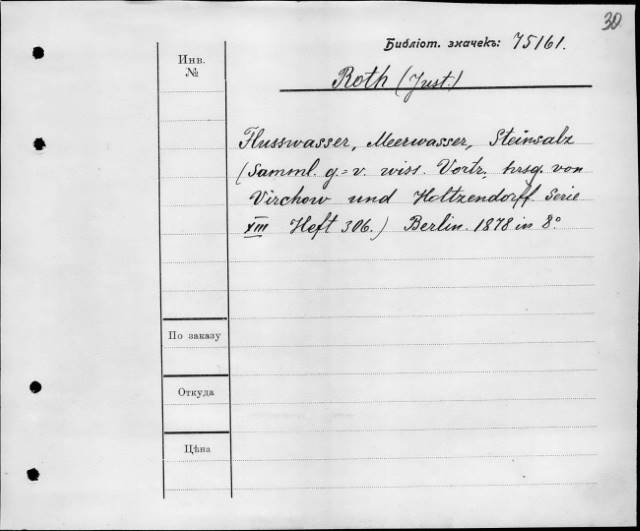 30
Библіот. значекъ: 75161.
Инв.
№
Roth (Just.)
Flusswasser, Meerwasser, Steinsalz
(Samml. g.-v. wiss. Vortr. hrsg. von
Virchow und Holtzendorff. Serie
XIII Heft 306.) Berlin. 1878 in 8°
По заказу
Откуда
Цѣна